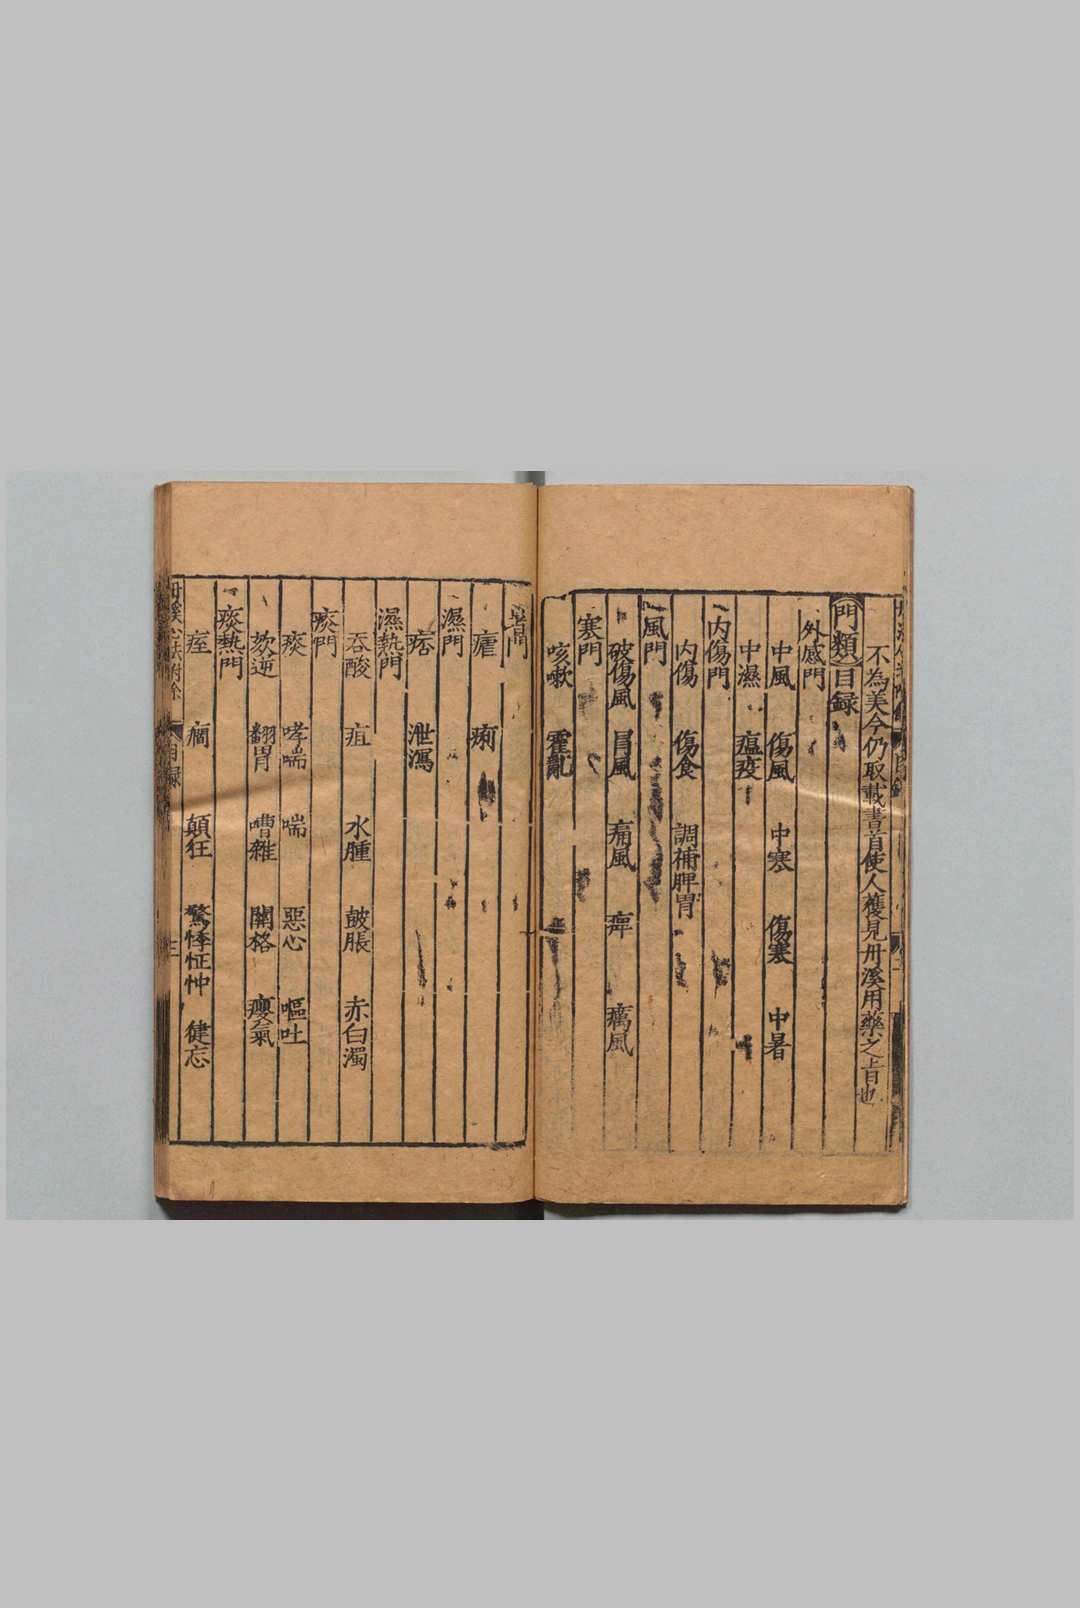 不為美今仍取載書首使人獲見丹溪用藥之旨也
門類目録
外感門
中風 傷風 中寒 傷寒 中暑
中濕 瘟疫
内傷門
内傷 傷食 調補脾胃
風門
破傷風 冐風 痛風 痺 癘風
寒門
咳嗽 霍亂
暑門
瘧 痢
濕門
痞 泄瀉
濕熱門
吞酸 疸 水腫 皷脹 赤白濁
痰門
痰 哮喘 喘 惡心 嘔吐
欬逆 翻胃 嘈雜 關格 癭氣
痰熱門
痓 癇 顛狂 驚悸怔忡 健忘
丹溪心法附餘 目録 三